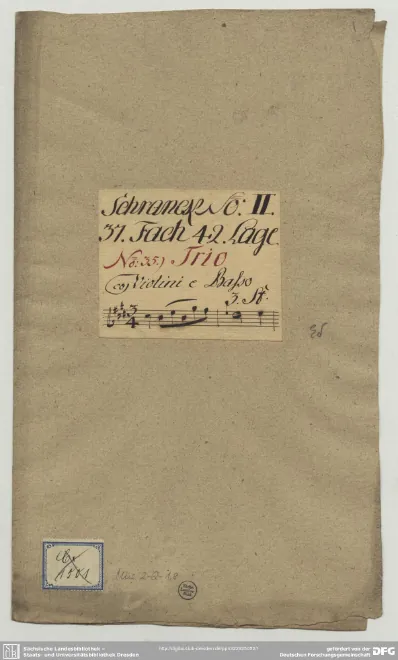 Schranck No: II.
37. Fach 42. Lage
No: 35.) Trio
co Violini e Basso
3. St.
3
4
Mus. 2-Q-
Sächsische Landesbibliothek –
Staats- und Universitätsbibliothek Dresden
gefördert von der
Deutschen Forschungsgemeinschaft
DFG